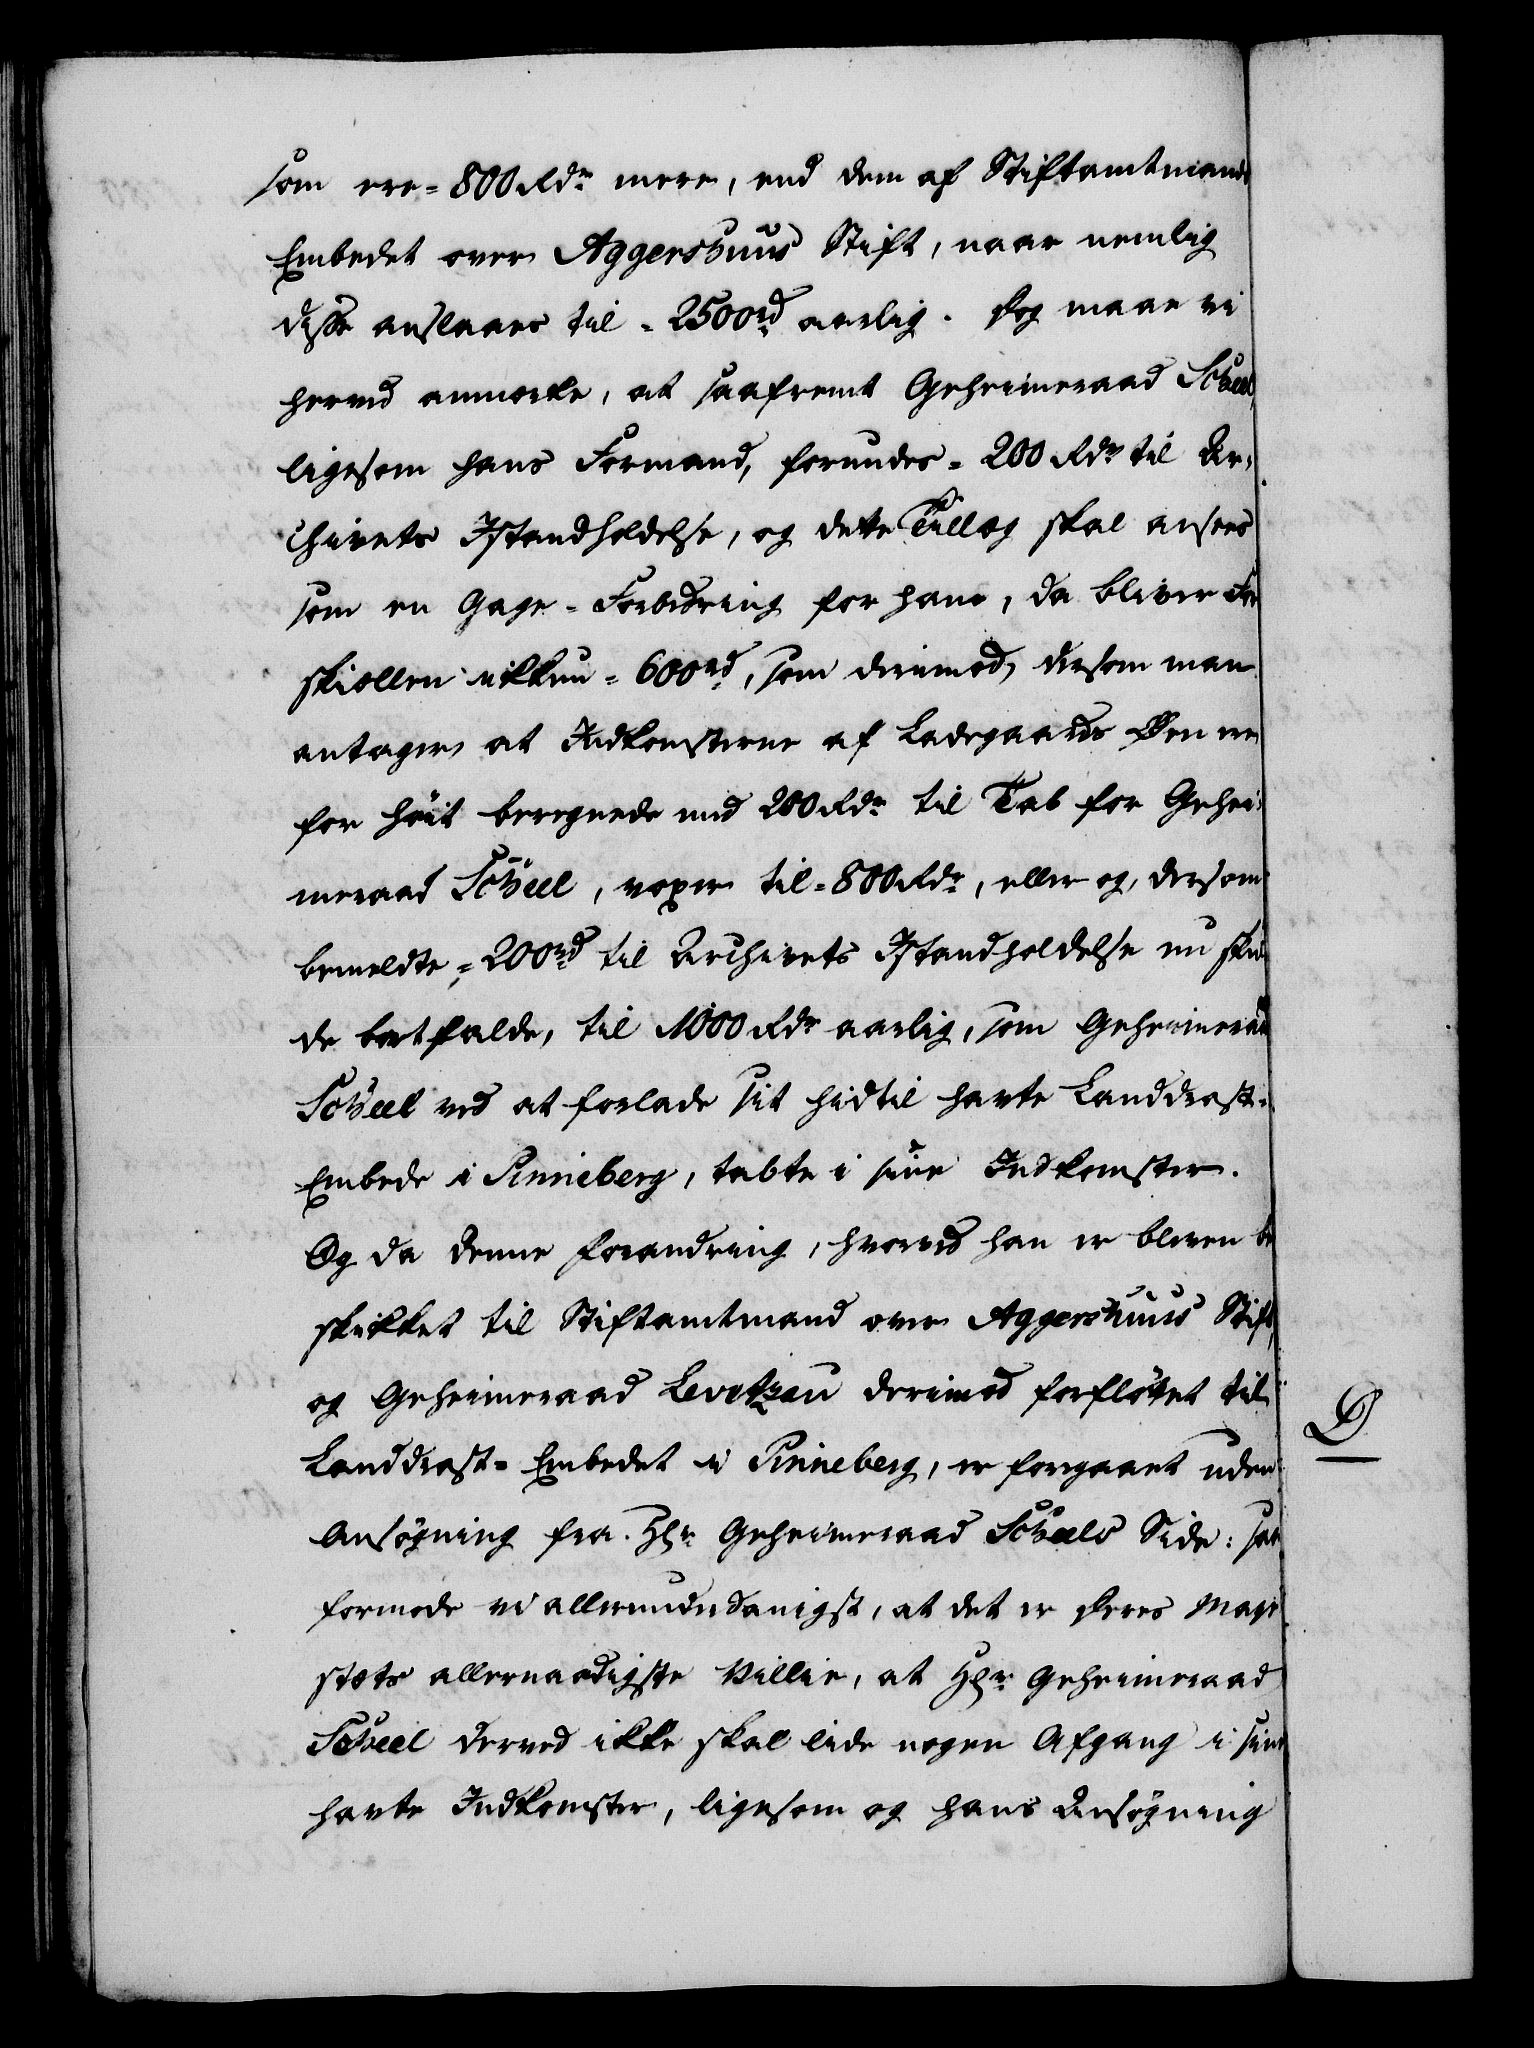 som ere = 800 Rdr mere, end dem af Stiftamtmands
Embedet over Aggershuus Stift, naar nemlig
disse anslaaes til = 2500rd aarlig. Dog maae vi
herved anmærke, at saafremt Geheimeraad Scheel,
ligesom hans Formand, forundes = 200 Rdr til Ar-
chivets Istandholdelse, og dette Tillæg skal ansees
som en Gage-Forbedring for ham, da bliver For
skiællen ikkun = 600rd, som derimod, dersom man
antager, at Indkomsterne af Ladegaards Øen ere
for høit beregnede med 200 Rdr til Tab for Gehei-
meraad Scheel, voxer til = 800 Rdr, eller og, dersom
bemeldte = 200rd til Archivets Istandholdelse nu skul
de bortfalde, til 1000 Rdr aarlig, som Geheimeraad
Scheel ved at forlade sit hidtil havte Landdrost-
Embede i Pinneberg, tabte i sine Indkomster.
Og da denne Forandring, hvorved han er bleven be
skikket til Stiftamtmand over Aggershuus Stift,
og Geheimeraad Levetzau derimod forfløttet til
Landdrost-Embedet i Pinneberg, er foregaaet uden
Ansøgning fra Hr Geheimeraad Scheels Side: saa
formode vi allerunderdanigst, at det er Deres Maje
stæts allernaadigste Villie, at Hr Geheimeraad
Scheel derved ikke skal lide nogen Afgang i sine
havte Indkomster, ligesom og hans Ansøgning
D